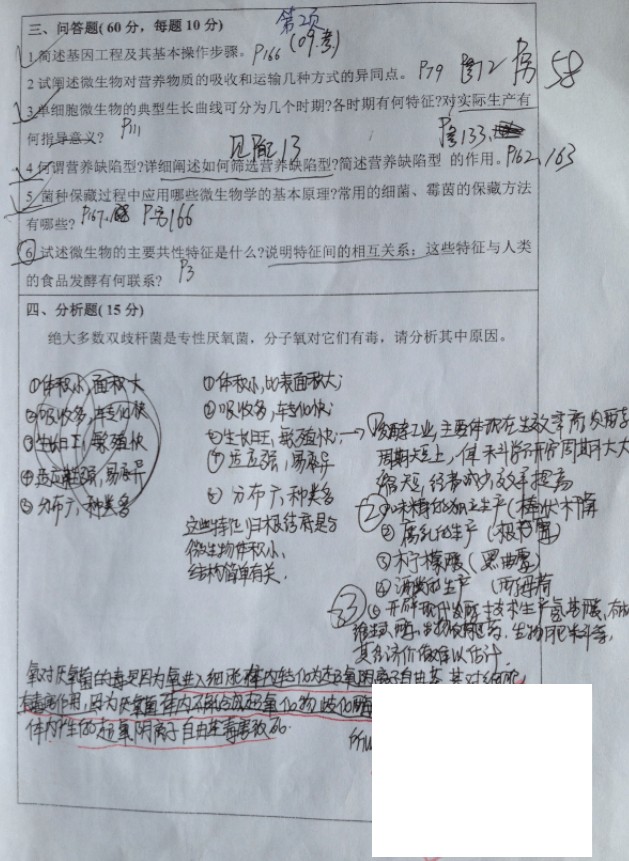 第2页
三、问答题(60分，每题10分) (09.考)
1 简述基因工程及其基本操作步骤。P166
2 试阐述微生物对营养物质的吸收和运输几种方式的异同点。P79 图12 P另58
3 单细胞微生物的典型生长曲线可分为几个时期?各时期有何特征?对实际生产有
何指导意义? P111 见 13 133
4 何谓营养缺陷型?详细阐述如何筛选营养缺陷型?简述营养缺陷型 的作用。P162、163
5 菌种保藏过程中应用哪些微生物学的基本原理?常用的细菌、霉菌的保藏方法
有哪些? P167、168 P另166
6 试述微生物的主要共性特征是什么?说明特征间的相互关系；这些特征与人类
的食品发酵有何联系? P3
四、分析题(15分)
绝大多数双歧杆菌是专性厌氧菌，分子氧对它们有毒，请分析其中原因。
①体积小，面积大
②吸收多，转化快
③生长旺，繁殖快
④适应强，易变异
⑤分布广，种类多
①体积小，比表面积大；
②吸收多，转化快；
③生长旺，繁殖快；→
④适应强，易变异
⑤分布广，种类多
这些特性归根结蒂是与
微生物体积小、
结构简单有关.
①发酵工业，主要体现在生效率高，发酵
周期短上，
缩短，经常 效率提高
② 的 生产（
②腐乳的生产（根 霉）
③柠檬酸（黑曲霉）
④酒类的生产（酵母菌
⑥开辟现代发酵技术生产氨基酸，有机
维生素，酶，生物 药，生物肥料等，
其经济价值难以估计.
氧对厌氧菌的毒是因为氧进入细胞体内转化为超氧阴离子自由基，其对细胞
有毒害作用，因为厌氧菌体内不能合成超氧化物歧化酶
体内产生的超氧阴离子自由基毒害致死.
所以